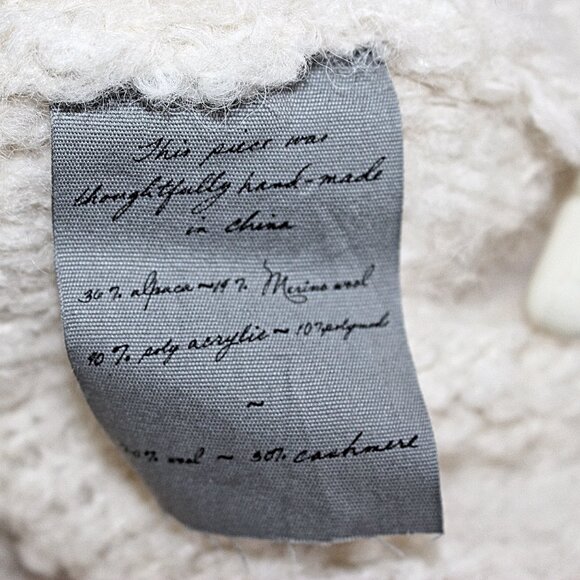 This piece was
thoughtfully hand-made
in china
36% alpaca ~ 14% Merino wool
40% poly acrylic ~ 10% polyamide
~
70% wool ~ 30% cashmere